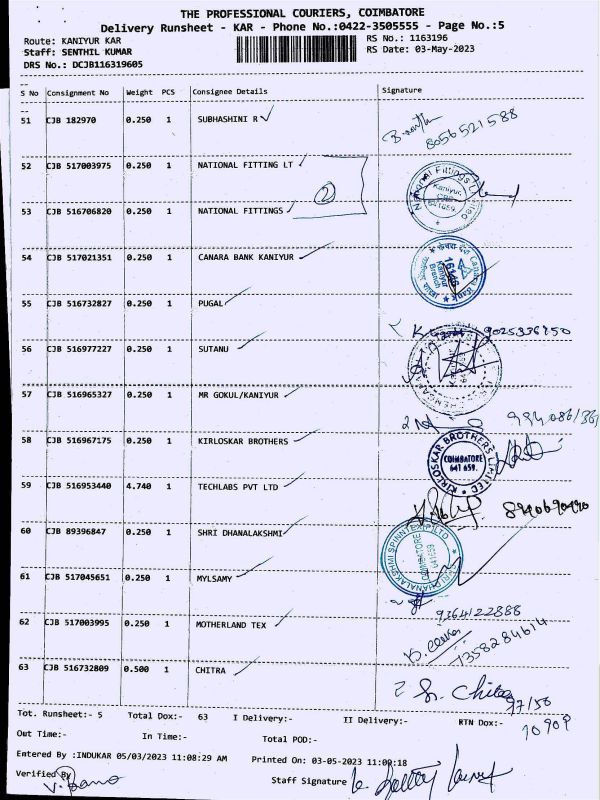 THE PROFESSIONAL COURIERS, COIMBATORE
Delivery Runsheet - KAR - Phone No.:0422-3505555 - Page No.:5
Route: KANIYUR KAR RS No.: 1163196
Staff: SENTHIL KUMAR RS Date: 03-May-2023
DRS No.: DCJB116319605
S No Consignment No Weight PCS Consignee Details Signature
51 CJB 182970 0.250 1 SUBHASHINI R
8056521588
52 CJB 517003975 0.250 1 NATIONAL FITTING LT
2
National Fittings Limited Kaniyur
53 CJB 516706820 0.250 1 NATIONAL FITTINGS
54 CJB 517021351 0.250 1 CANARA BANK KANIYUR
केनरा बैंक Canara Bank 16146 Kaniyur Branch
55 CJB 516732827 0.250 1 PUGAL
9025336750
56 CJB 516977227 0.250 1 SUTANU
57 CJB 516965327 0.250 1 MR GOKUL/KANIYUR
58 CJB 516967175 0.250 1 KIRLOSKAR BROTHERS
KIRLOSKAR BROTHERS LIMITED COIMBATORE 641 659.
59 CJB 516953440 4.740 1 TECHLABS PVT LTD
60 CJB 89396847 0.250 1 SHRI DHANALAKSHMI
SHRI DHANALAKSHMI SPINNTEX (P) LTD COIMBATORE 641659
61 CJB 517045651 0.250 1 MYLSAMY
9764122888
62 CJB 517003995 0.250 1 MOTHERLAND TEX
7358284614
63 CJB 516732809 0.500 1 CHITRA
S. Chitra
97150
10909
Tot. Runsheet:- 5 Total Dox:- 63 I Delivery:- II Delivery:- RTN Dox:-
Out Time:- In Time:- Total POD:-
Entered By :INDUKAR 05/03/2023 11:08:29 AM Printed On: 03-05-2023 11:09:18
Verified By Staff Signature